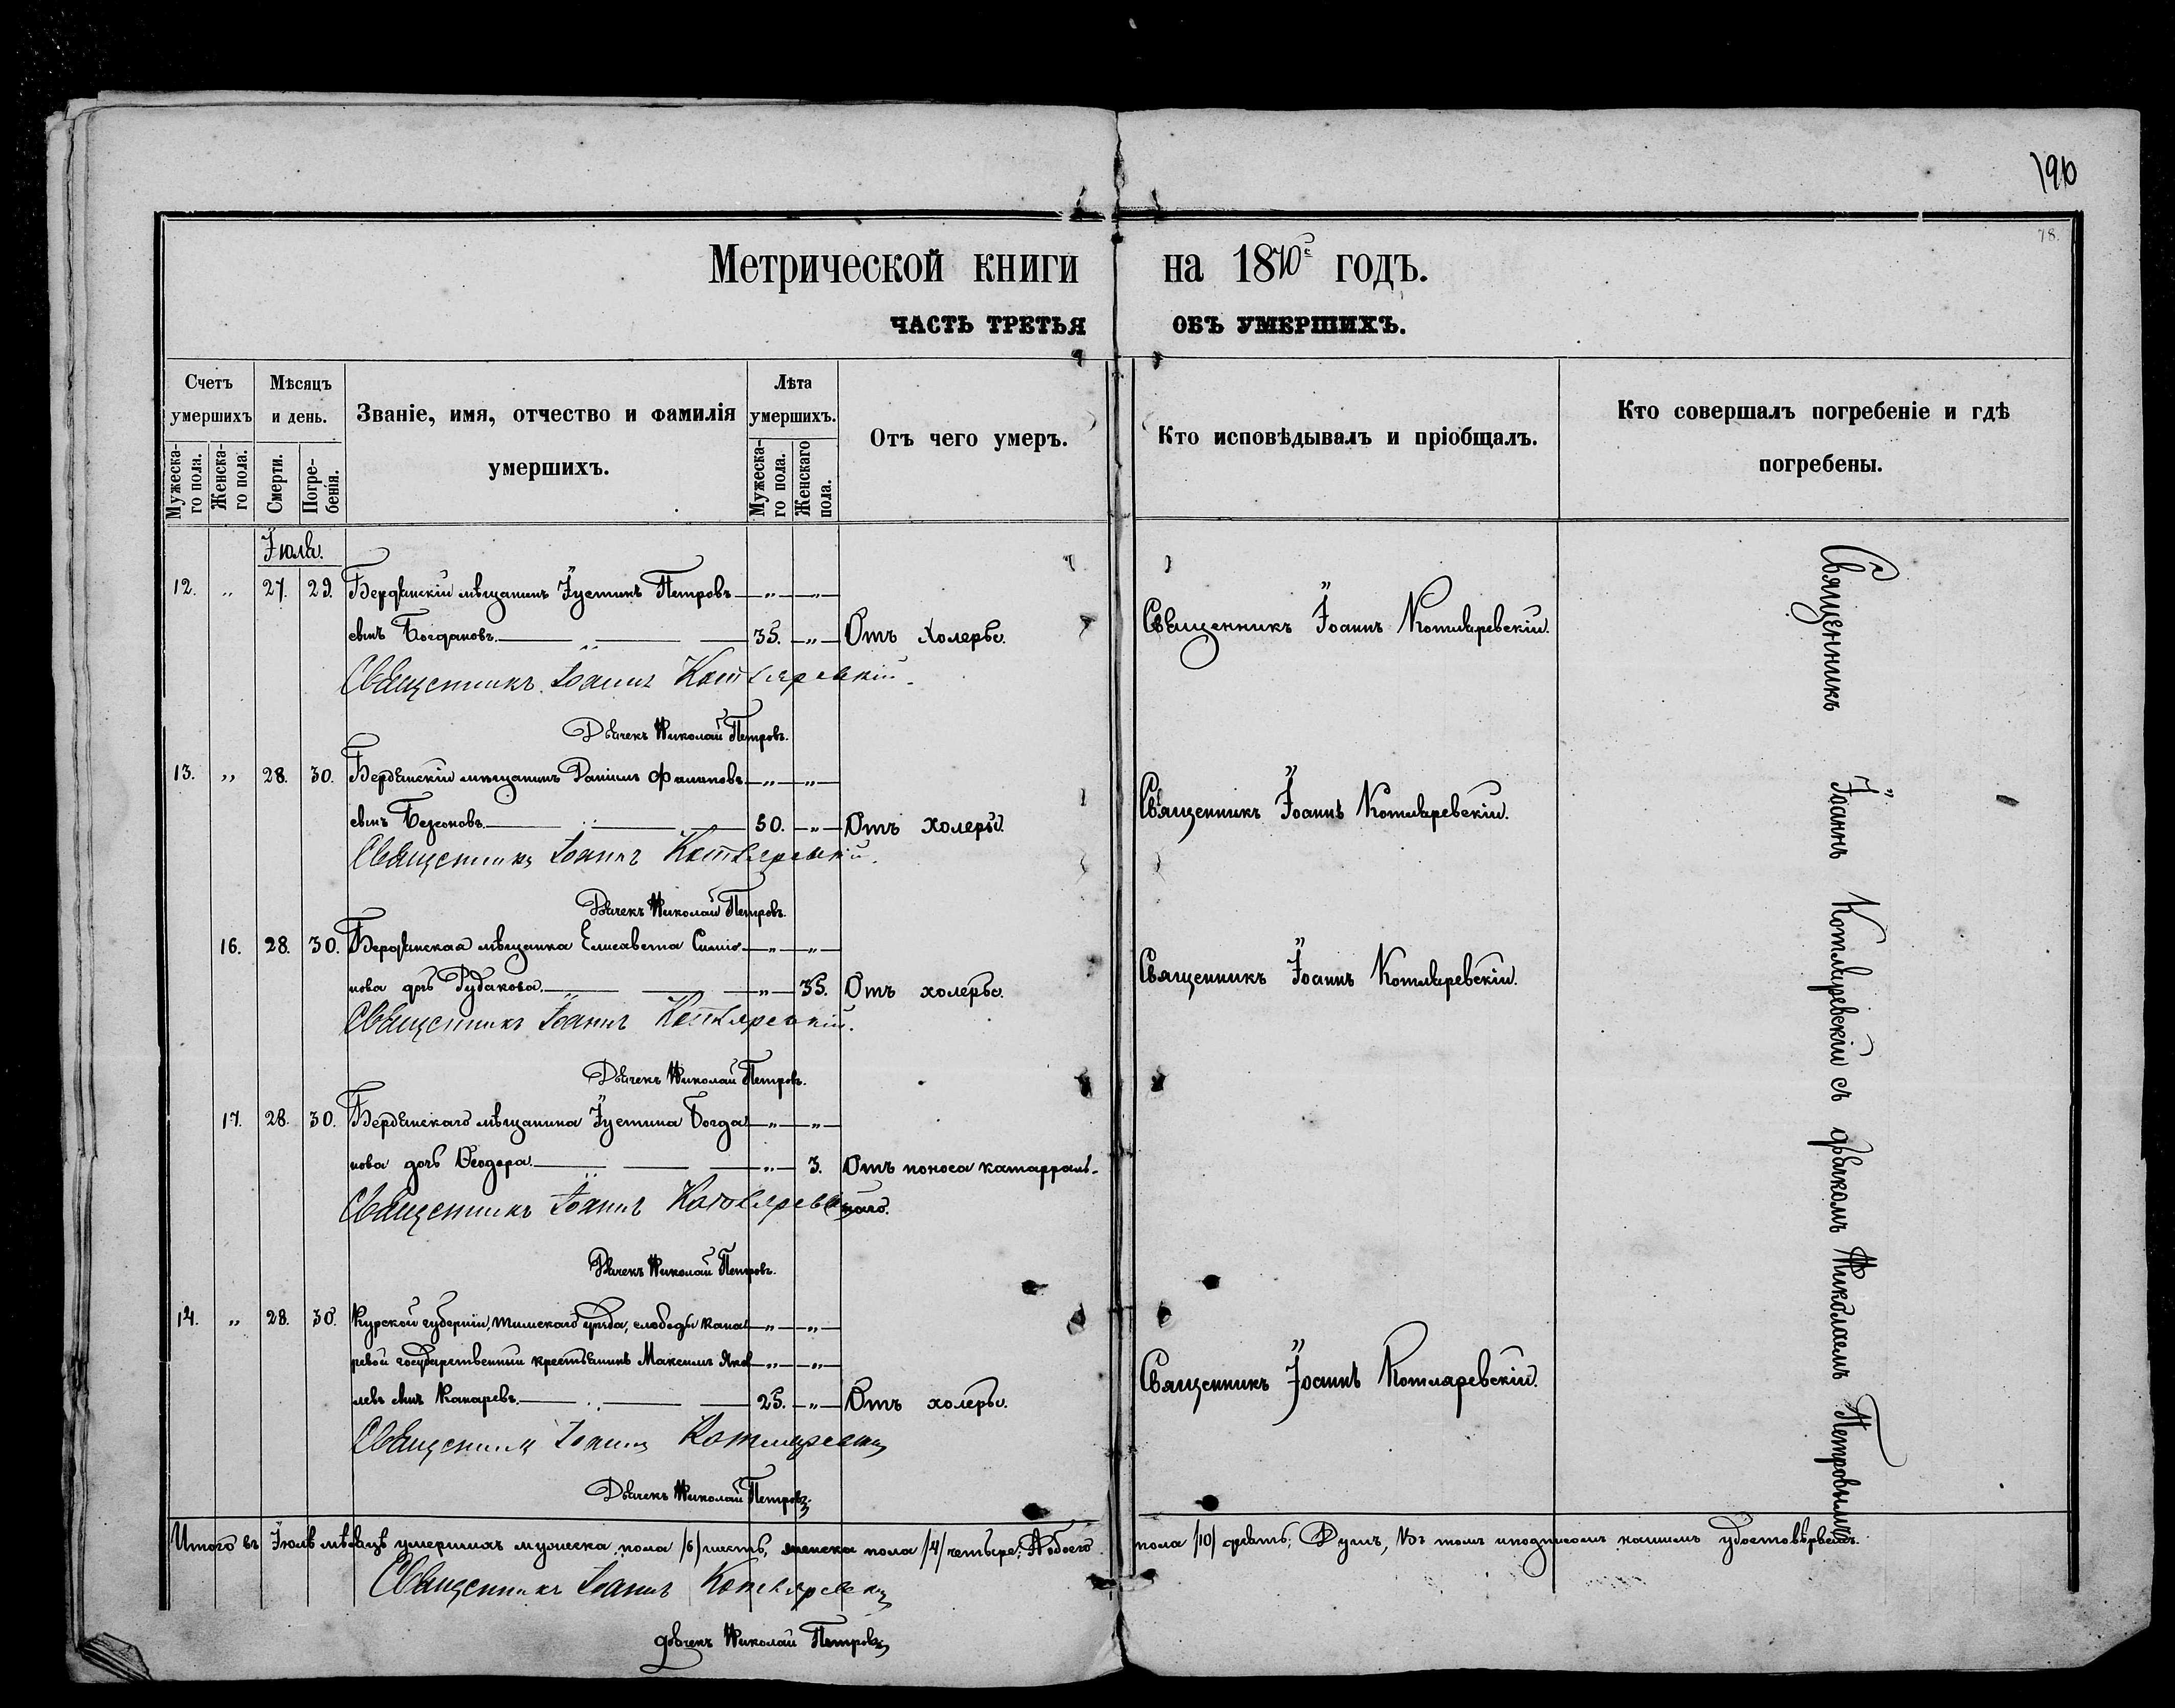 190
78.
Метрической книги на 1870г годъ.
ЧАСТЬ ТРЕТЬЯ ОБЪ УМЕРШИХЪ.
Счетъ умершихъ
Мѣсяцъ и день.
Званіе, имя, отчество и фамилія умершихъ.
Лѣта умершихъ.
Отъ чего умеръ.
Кто исповѣдывалъ и пріобщалъ.
Кто совершалъ погребеніе и гдѣ погребены.
Мужеска-го пола.
Женска-го пола.
Смерти.
Погре-бенія.
Мужеска-го пола.
Женскаго пола.
Іюля.
12. „ 27. 29. Бердянскій мѣщанинъ Іустинъ Петровъ „ „
сынъ Богдановъ. „ 35. „ Отъ холеры. Священникъ Іоаннъ Котляревскій.
Священникъ Іоаннъ Котляревскій.
Дьячекъ Николай Петровъ.
13. „ 28. 30. Бердянскій мѣщанинъ Даніилъ Филиповъ „ „
сынъ Безсоновъ. „ 50. „ Отъ холеры. Священникъ Іоаннъ Котляревскій.
Священникъ Іоаннъ Котляревскій.
Дьячекъ Николай Петровъ.
16. 28. 30. Бердянская мѣщанка Елисавета Симіо- „ „
нова дочь Рудакова. „ „ 35. Отъ холеры. Священникъ Іоаннъ Котляревскій.
Священникъ Іоаннъ Котляревскій.
Дьячекъ Николай Петровъ.
17. 28. 30. Бердянскаго мѣщанина Іустина Богда- „ „
нова дочь Ѳеодора. „ „ 3. Отъ поноса катарраль-
наго.
Священникъ Іоаннъ Котляревскій
Дьячекъ Николай Петровъ.
14. „ 28. 30. Курской губерніи, тимскаго уѣзда, слободы Кана- „ „
ревой государственный крестьянинъ Максимъ Яков- „ „
левъ сынъ Канаревъ. „ 25. „ Отъ холеры. Священникъ Іоаннъ Котляревскій.
Священникъ Іоаннъ Котляревскій
Дьячекъ Николай Петровъ
Священникъ Іоаннъ Котляревскій съ дьячкомъ Николаемъ Петровымъ
Итого въ Іюлѣ мѣсяцѣ умершихъ мужеска пола /6/ шесть, женска пола /4/ четыре; Аобоего пола /10/ Душъ, Въ томъ подписомъ нашимъ удостовѣряемъ.
Священникъ Іоаннъ Котляревскій
дьячекъ Николай Петровъ